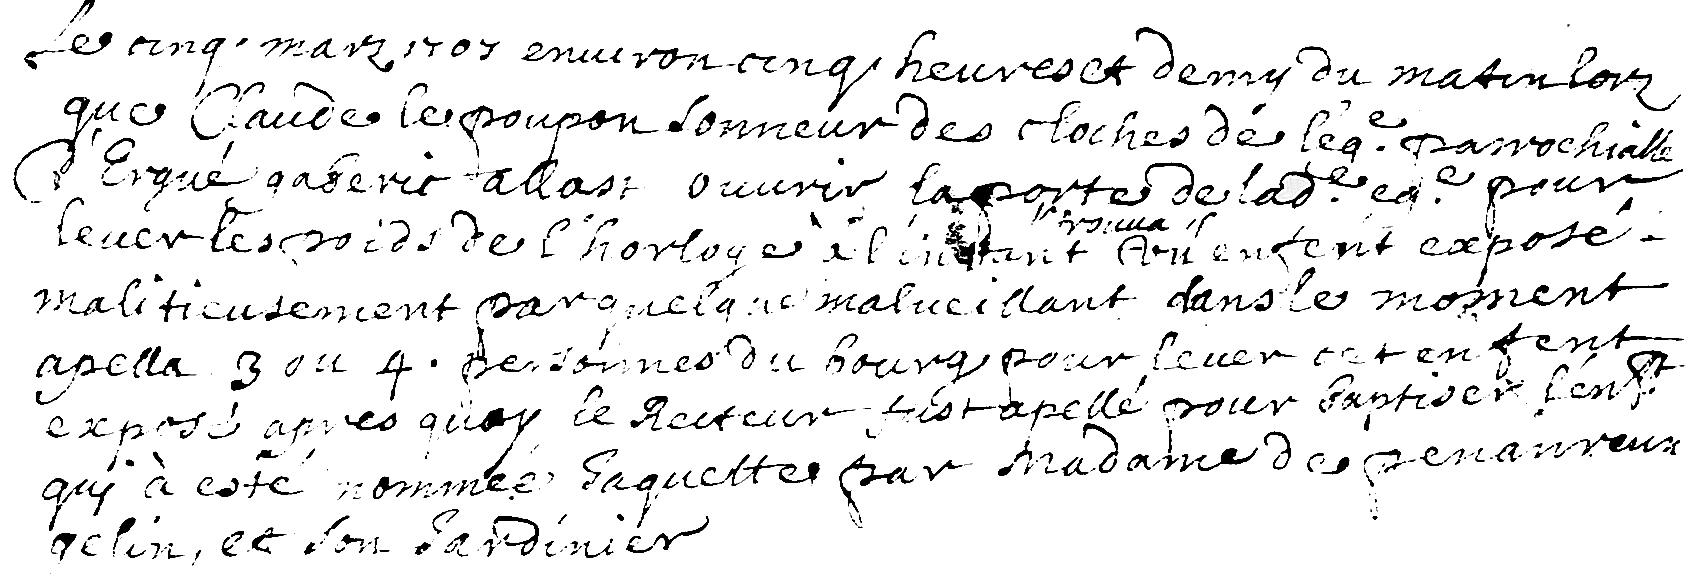 Le cinq. marz 1707 environ cinq heures et demy du matin lorz
que Claude le poupon sonneur des cloches de l'eg.e parrochialle
d'Ergué gaberic allast ouvrir la porte de lad.e eg.e pour
lever les poids de l'horloge à l'instant trouva un enfent exposé -
malitieusement par quelque malveillant dans le moment
apella 3 ou 4. personnes du bourg pour lever cet enfent
exposé apres quoy le Recteur fust apellé pour baptiser l'enft
quy à esté nommée Jaquette par Madame de penanreun
gelin, et son Jardinier